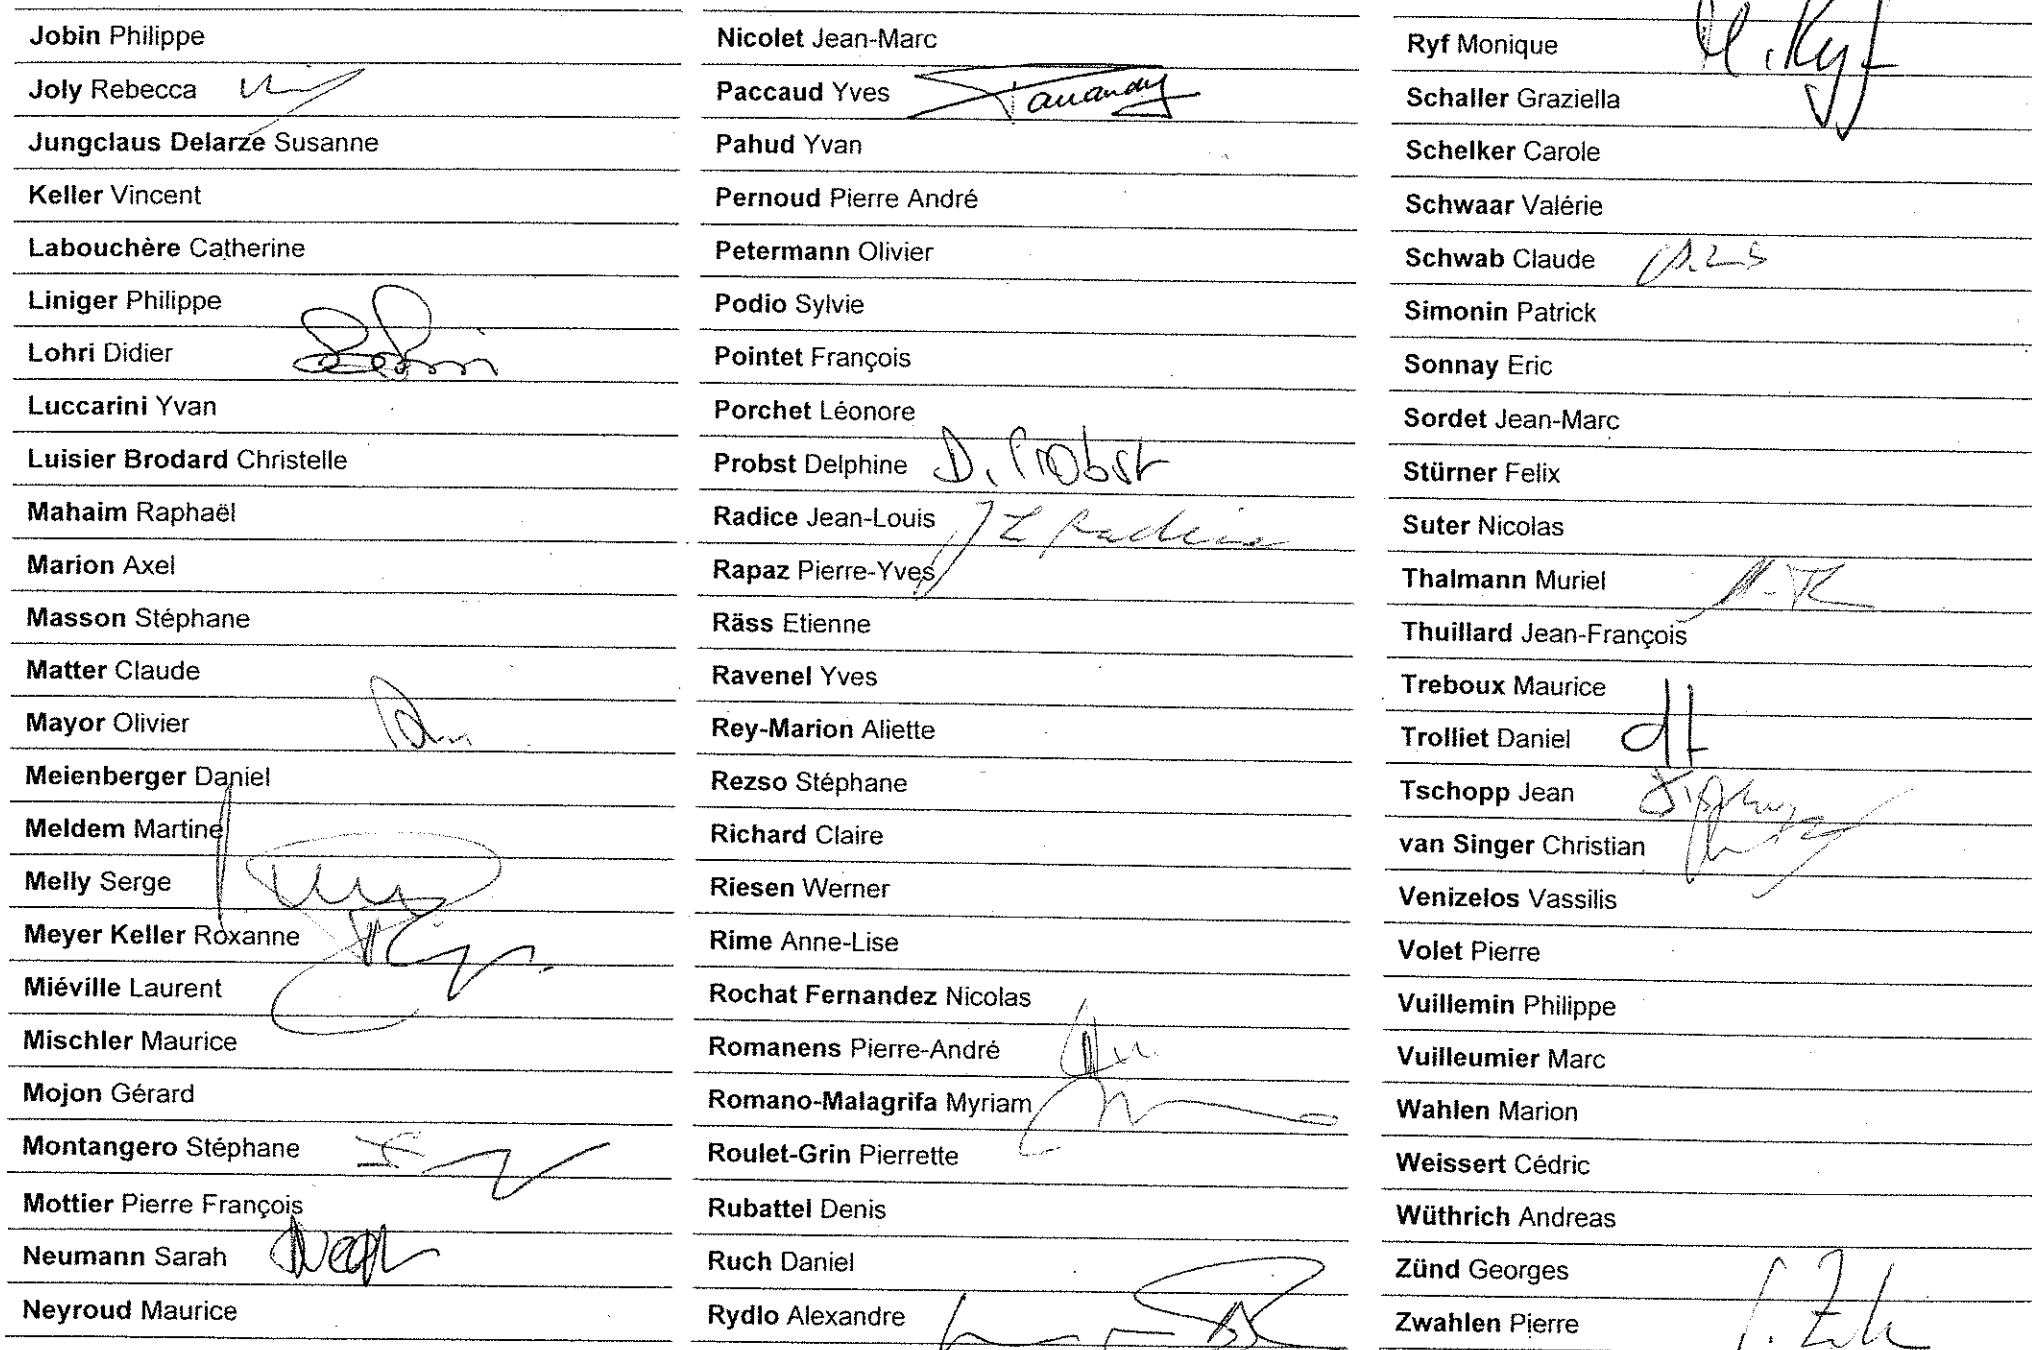 Jobin Philippe
Joly Rebecca
Jungclaus Delarze Susanne
Keller Vincent
Labouchère Catherine
Liniger Philippe
Lohri Didier
Luccarini Yvan
Luisier Brodard Christelle
Mahaim Raphaël
Marion Axel
Masson Stéphane
Matter Claude
Mayor Olivier
Meienberger Daniel
Meldem Martine
Melly Serge
Meyer Keller Roxanne
Miéville Laurent
Mischler Maurice
Mojon Gérard
Montangero Stéphane
Mottier Pierre François
Neumann Sarah
Neyroud Maurice
Nicolet Jean-Marc
Paccaud Yves
Pahud Yvan
Pernoud Pierre André
Petermann Olivier
Podio Sylvie
Pointet François
Porchet Léonore
Probst Delphine D. Probst
Radice Jean-Louis JL Radice
Rapaz Pierre-Yves
Räss Etienne
Ravenel Yves
Rey-Marion Aliette
Rezso Stéphane
Richard Claire
Riesen Werner
Rime Anne-Lise
Rochat Fernandez Nicolas
Romanens Pierre-André
Romano-Malagrifa Myriam
Roulet-Grin Pierrette
Rubattel Denis
Ruch Daniel
Rydlo Alexandre
Ryf Monique M. Ryf
Schaller Graziella
Schelker Carole
Schwaar Valérie
Schwab Claude
Simonin Patrick
Sonnay Eric
Sordet Jean-Marc
Stürner Felix
Suter Nicolas
Thalmann Muriel
Thuillard Jean-François
Treboux Maurice
Trolliet Daniel dt
Tschopp Jean
van Singer Christian
Venizelos Vassilis
Volet Pierre
Vuillemin Philippe
Vuilleumier Marc
Wahlen Marion
Weissert Cédric
Wüthrich Andreas
Zünd Georges
Zwahlen Pierre